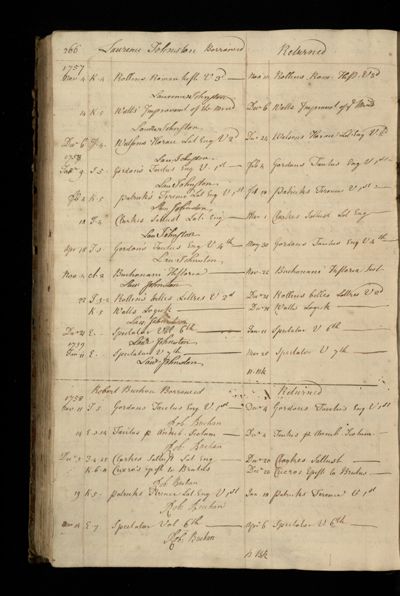 266 Laurence Johnston Borrowed Returned
1757
Nov 4 K.4 Rollins Roman hist. V 3d Nov 11 Rollins Rom: Hist V 3d
Laurence Johnston
14 K.5 Watts' Improvment of the Mind Decr 6 Watts Improvmt of ye Mind
Laure Johnston
Decr 6 Watsons Horace Lat Eng V 2d Decr 24 Watsons Horace Lat Eng V 2d
1758 Lau: Johnston
9 I.5 Gordons Tacitus Eng V 1st Feb 4 Gordons Tacitus Eng V 1st
Lau: Johnston
Feb 4 K.5 Patricks Terence Lat Eng V 1st Feb 18 Patricks Terence V 1st
Lau Johnston
18 Clarkes Sallust Lat: Eng Mar 1 Clarkes Sallust Lat Eng
Lau Johnston
Apr 18 I.5 Gordons Tacitus Eng V 4th May 30 Gordons Tacitus Eng V 4th
Lau: Johnston
Nov 4 Buchanani Historia Nov 22 Buchanani Historia
Lau Johnston
22 I. Rollins belles Lettres V 2d Decr 21 Rollins belles Lettres V 2d
K 5 Watts Logick Decr 21 Watts Logick
Lau: Johnston
Decr 21 E. Spectator Vol 6th Jan 11 Spectator V 6th
1759 Lau: Johnston
Jan 11 E. Spectator V 7th Spectator V 7th
Lau: Johnston
1758 Robert Buchan Borrowed Returned
Nov 11 I.5 Gordons Tacitus Eng V 1st Decr 4 Gordons Tacitus Eng V 1st
Rob. Buchan
14 Tacitus p Decr 2 Tacitus p
Rob Buchan
Decr 2 Clarkes Sallust Lat Eng Decr 20 Clarkes Sallust
K.6. Cicero's Epist to Brutus Decr 20 Ciceros Epist to Brutus
Rob Buchan
19 K.5 Patricks Terence Lat Eng V 1st Jan 10 Patricks Terence V 1st
Rob Buchan
Mar E.7 Spectator Vol 6th Apr 6 Spectator V 6th
Rob: Buchan